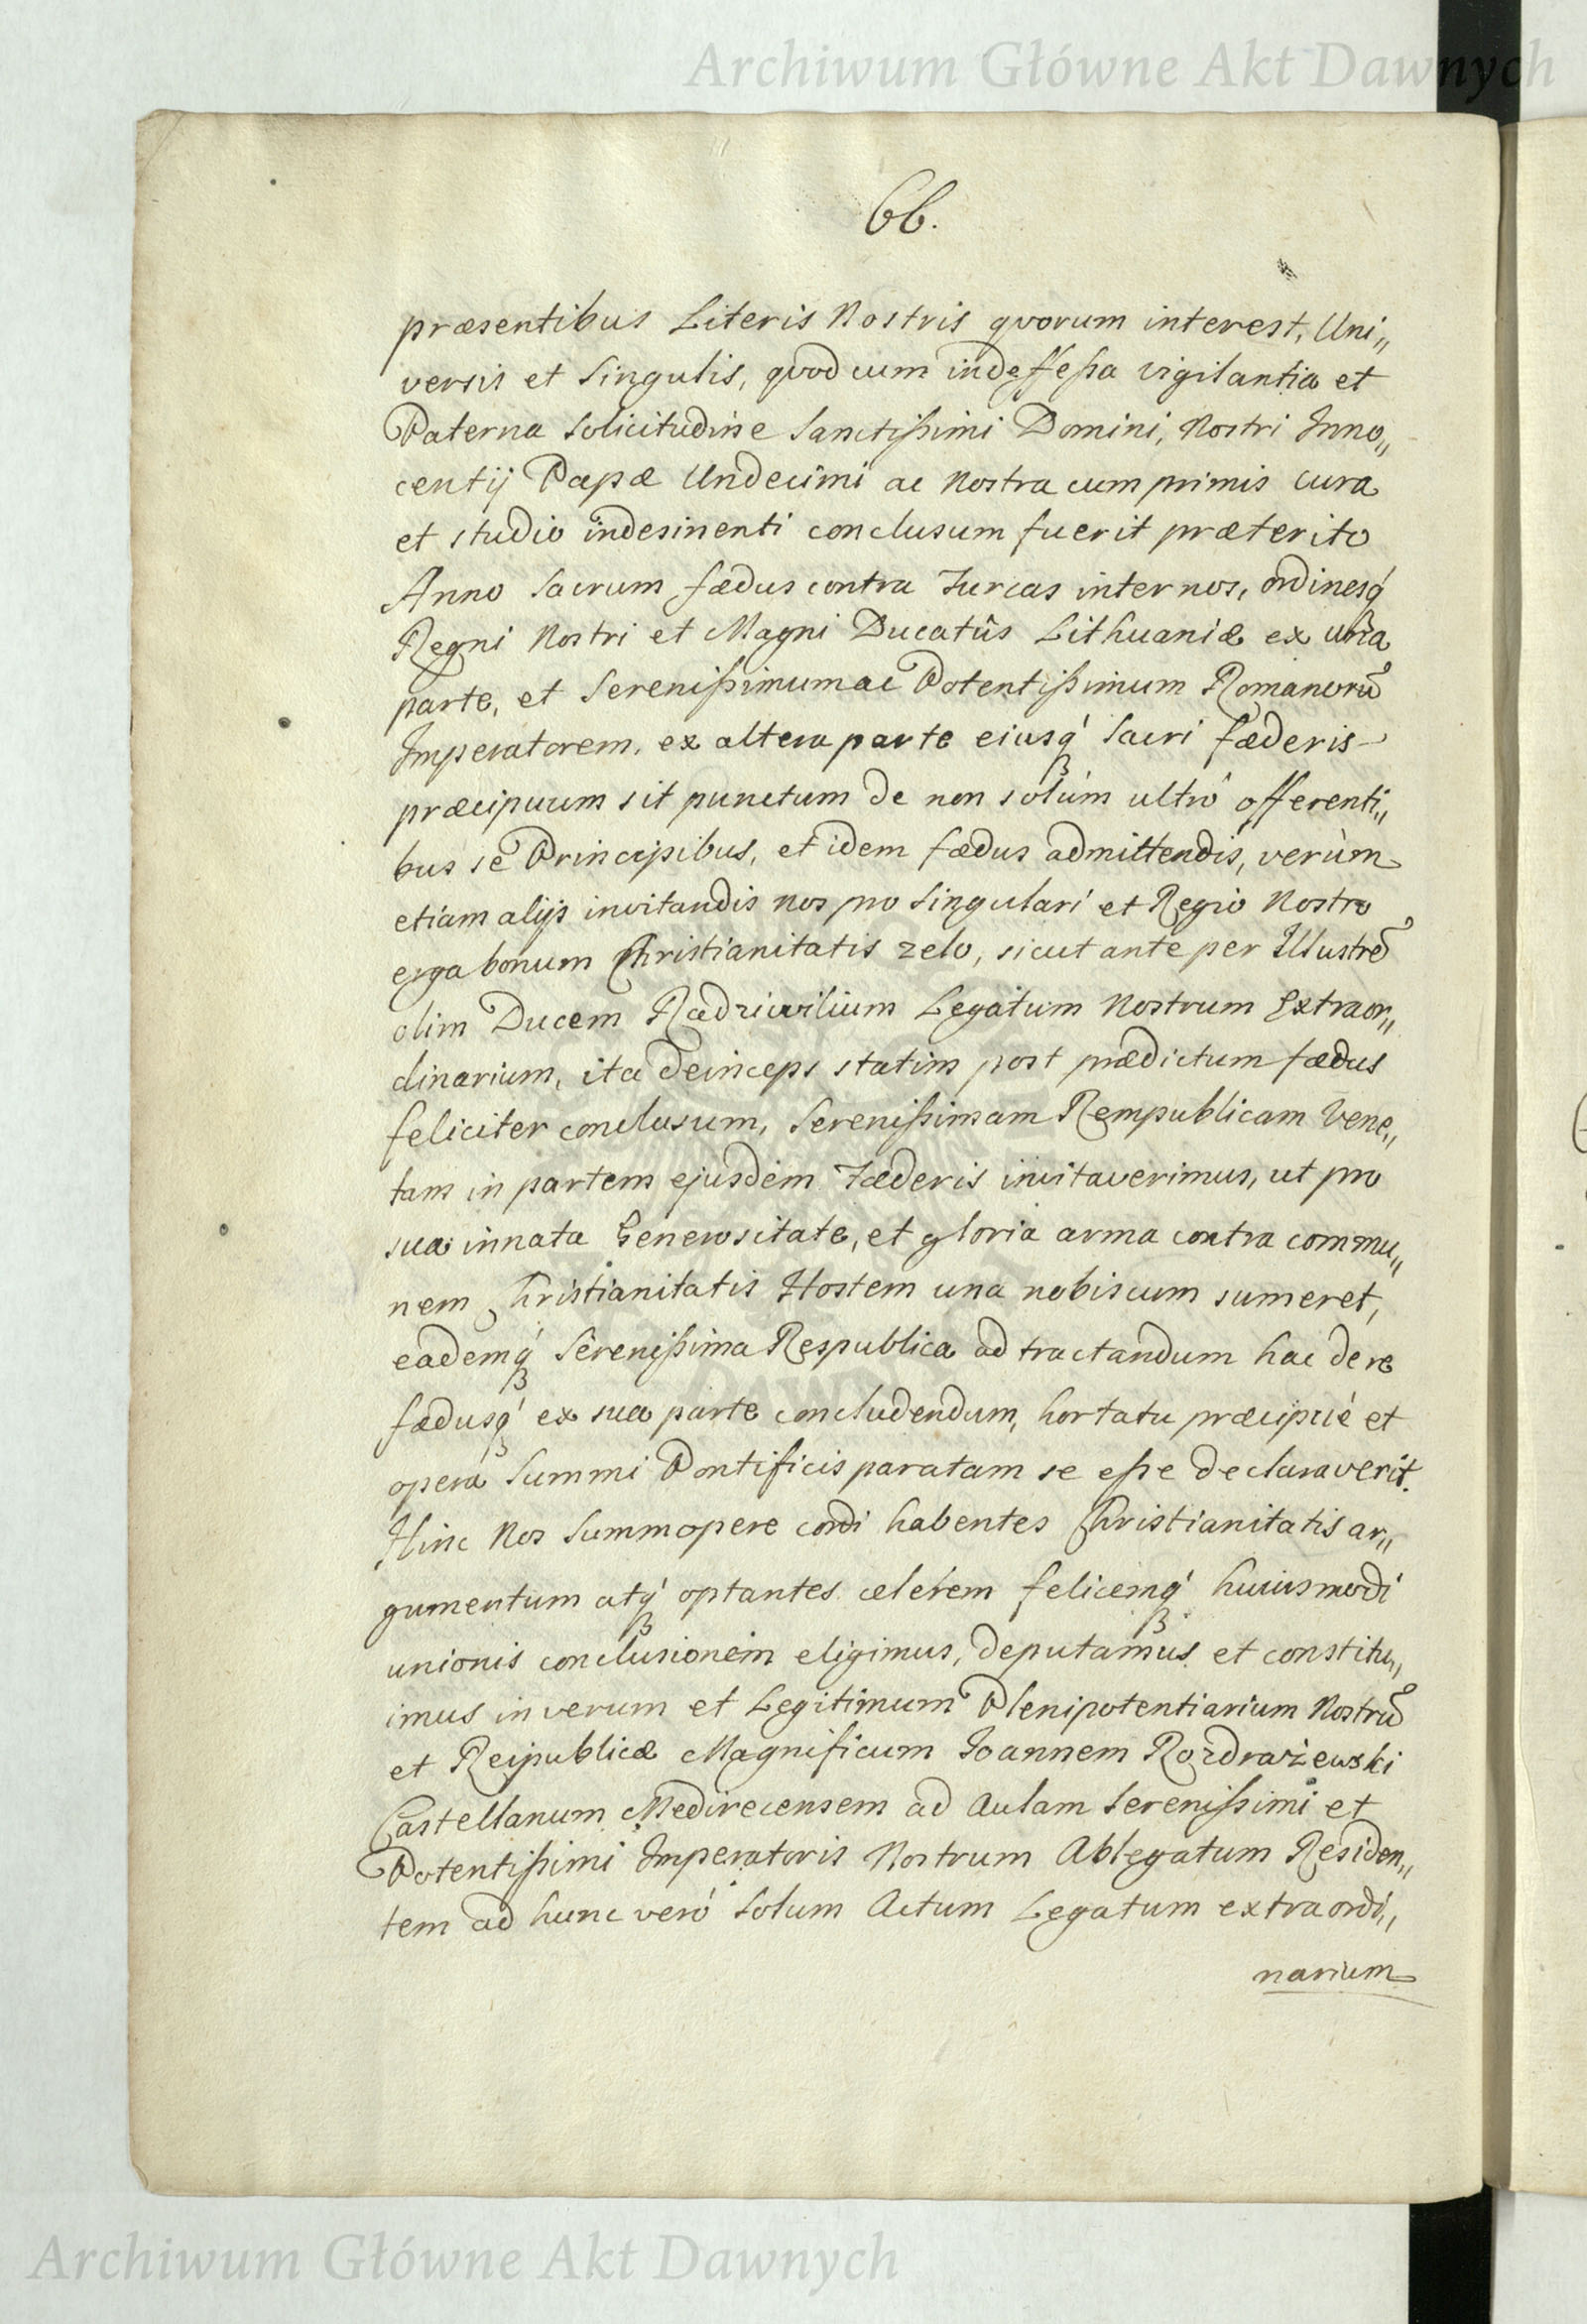 Archiwum Główne Akt Dawnych
66.
præsentibus Literis Nostris qvorum interest, Uni„
versis et Singulis, qvod cum indeffeßa vigilantia et
Paterna Solicitudine Sanctißimi Domini, Nostri Inno„
centij Papæ Undecimi ac Nostra cum primis cura
et studio indesinenti conclusum fuerit præterito
Anno Sacrum fædus contra Turcas inter nos, ordinesq́
Regni Nostri et Magni Ducatûs Lithuaniæ ex una
parte, et Serenißimum ac Potentißimum Romanorũ
Imperatorem, ex altera parte eiusq́ Sacri fæderis
præcipuum sit punctum de non solùm ultrò offerenti„
bus se Principibus, et idem fædus admittendis, verùm
etiam alijs invitandis nos pro Singulari et Regio Nostro
erga bonum Christianitatis zelo, sicut ante per Illustrẽ
olim Ducem Radziwilium Legatum Nostrum Extraor„
dinarium, ita deinceps statim post prædictum fædus
feliciter conclusum, Serenißimam Rempublicam Vene„
tam in partem ejusdem Fæderis invitaverimus, ut pro
sua innata Generositate, et gloria arma contra commu„
nem Christianitatis Hostem una nobiscum sumeret,
eademq́ Serenißima Respublica ad tractandum hac de re
fædusq́ ex sua parte concludendum, hortatu præcipuè et
operâ Summi Pontificis paratam se eße declaraverit.
Hinc Nos Summopere cordi habentes Christianitatis ar„
gumentum atq́ optantes celerem felicemq́ huiusmodi
unionis conclusionem eligimus, deputamus et constitu„
imus in verum et Legitimum Plenipotentiarium Nostrũ
et Reipublicæ Magnificum Joannem Rozdrażewski
Castellanum Medirecensem ad Aulam Serenißimi et
Potentißimi Imperatoris Nostrum Ablegatum Residen„
tem ad hunc verò Solum Actum Legatum extraordi„
narium
Archiwum Główne Akt Dawnych